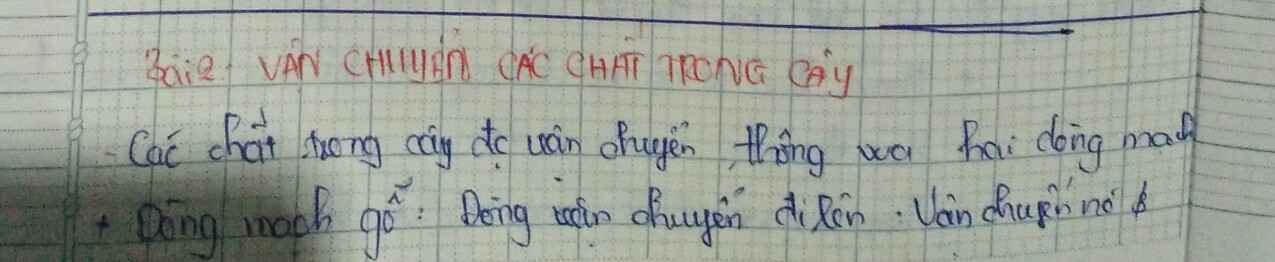 Bài 2: VẬN CHUYỂN CÁC CHẤT TRONG CÂY
- Các chất trong cây đc vận chuyển thông qua hai dòng mạch
+ Dòng mạch gỗ: Dòng vận chuyển đi lên. Vận chuyển